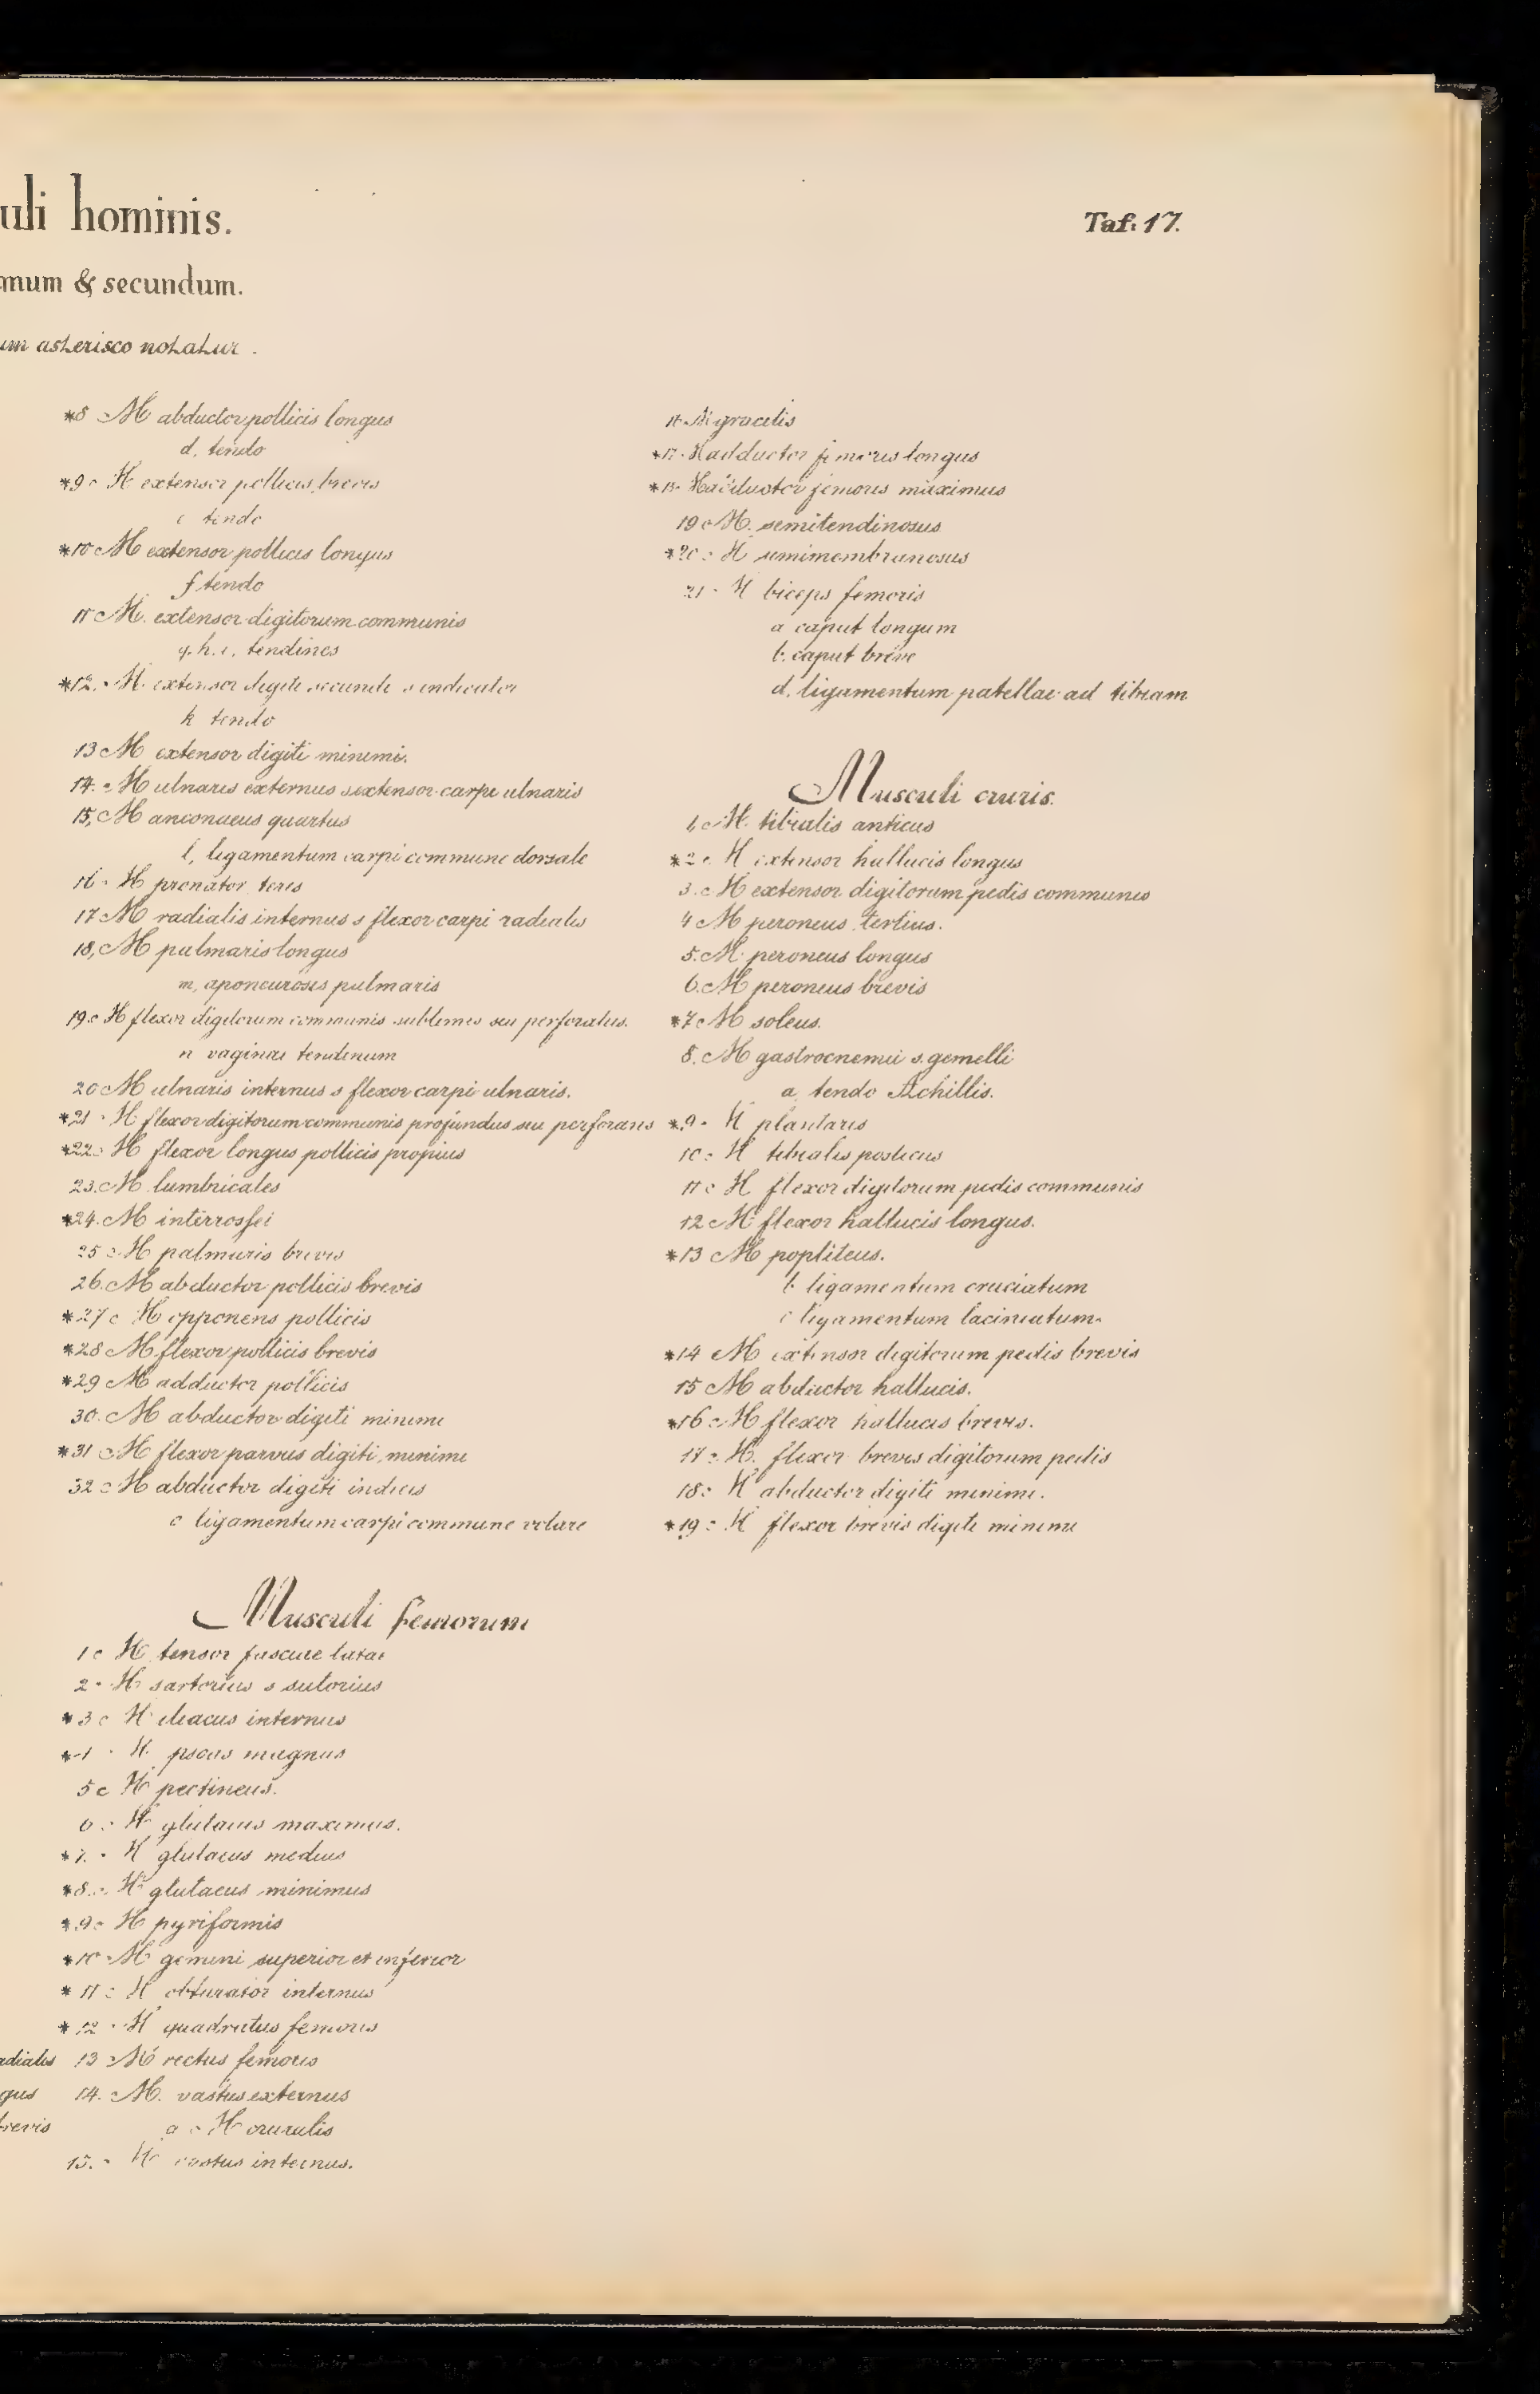 uli hominis.
Taf: 17.
mum & secundum.
um asterisco notatur.
*8 M abductor pollicis longus
d. tendo
*9 M extensor pollicis brevis
e tendo
*10 M extensor pollicis longus
f tendo
11 M. extensor digitorum communis
g. h. i. tendines
*12. M. extensor digiti secundi s indicator
k tendo
13 M extensor digiti minimi.
14. M ulnaris externus s extensor carpi ulnaris
15, M anconaeus quartus
l, ligamentum carpi commune dorsale
16 M pronator teres
17 M radialis internus s flexor carpi radialis
18, M palmaris longus
m, aponeurosis palmaris
19 M flexor digitorum communis sublimis seu perforatus.
n vaginae tendinum
20 M ulnaris internus s flexor carpi ulnaris.
*21 M flexor digitorum communis profundus seu perforans
*22 M flexor longus pollicis propius
23. M lumbricales
*24. M interrossei
25 M palmaris brevis
26. M abductor pollicis brevis
*27 M opponens pollicis
*28 M flexor pollicis brevis
*29 M adductor pollicis
30. M abductor digiti minimi
*31 M flexor parvus digiti minimi
32 M abductor digiti indicis
o ligamentum carpi commune volare
Musculi femorum
1 M tensor fasciae latae
2 M sartorius s sutorius
*3 M iliacus internus
*4 M. psoas magnus
5 M pectineus.
6 M glutaeus maximus.
*7. M glutaeus medius
*8. M glutaeus minimus
*9 M pyriformis
*10 M gemini superior et inferior
*11 M obturator internus
*12 M quadratus femoris
adialis 13 M rectus femoris
gus 14. M. vastus externus
brevis a M cruralis
15. M vastus internus.
16 M gracilis
*17 M adductor femoris longus
*18 M adductor femoris maximus
19 M. semitendinosus
*20 M semimembranosus
21 M biceps femoris
a caput longum
b. caput breve
d. ligamentum patellae ad tibiam
Musculi cruris.
1, M. tibialis anticus
*2 M extensor hallucis longus
3. M extensor digitorum pedis communis
4 M peroneus tertius.
5. M peroneus longus
6. M peroneus brevis
*7 M soleus.
8. M gastrocnemii s. gemelli
a, tendo Achillis.
*9 M plantaris
10 M tibialis posticus
11 M flexor digitorum pedis communis
12 M flexor hallucis longus.
*13 M popliteus.
b ligamentum cruciatum
c ligamentum laciniatum
*14 M extensor digitorum pedis brevis
15 M abductor hallucis.
*16 M flexor hallucis brevis.
17 M. flexor brevis digitorum pedis
18 M abductor digiti minimi.
*19 M flexor brevis digiti minimi